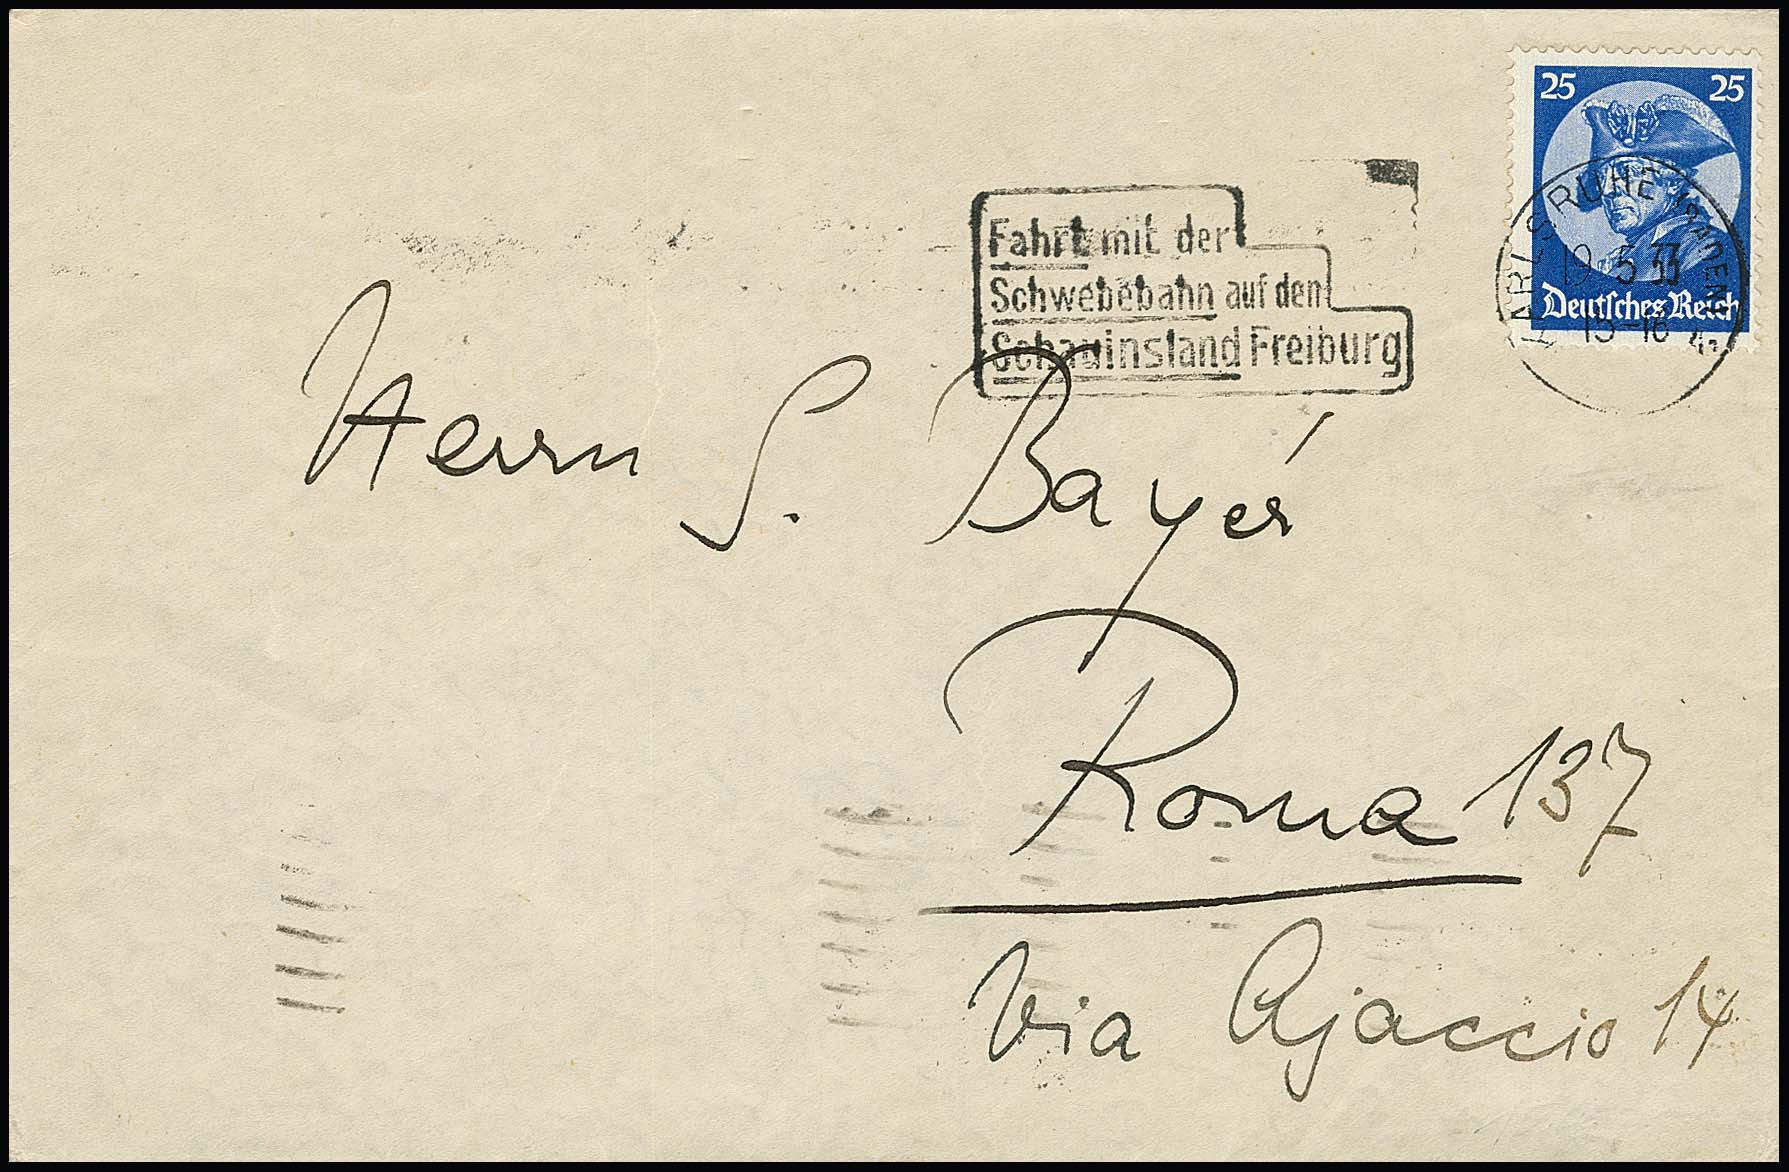 25 25
Deutsches Reich
KARLSRUHE (BADEN)
19.5.33
15-16
Fahrt mit der
Schwebebahn auf den
Schauinsland Freiburg
Herrn S. Bayer
Roma 137
Via Ajaccio 14